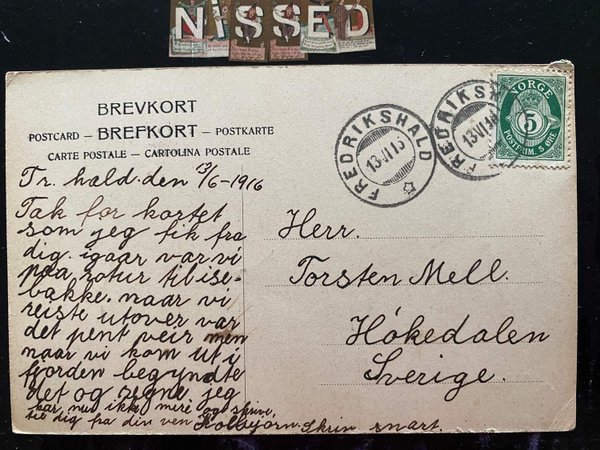 NiSSED
BREVKORT
POSTCARD — BREFKORT — POSTKARTE
CARTE POSTALE — CARTOLINA POSTALE
FREDRIKSHALD
13 VI 1
FREDRIKS
13 VI 1
NORGE
5
POSTFRIM. 5 ØRE
Fr. hald. den 13/6-1916
Tak for kortet
som jeg fik fra
dig. igaar var vi
paa rotur til ise-
bakke. naar vi
reiste utover var
det pent veir men
naar vi kom ut i
fjorden begyndte
det og regne. jeg
har nu ikke mere og skrive.
til dig fra din ven Kolbjørn Skriv snart.
Herr.
Torsten Mell.
Høkedalen
Sverige.